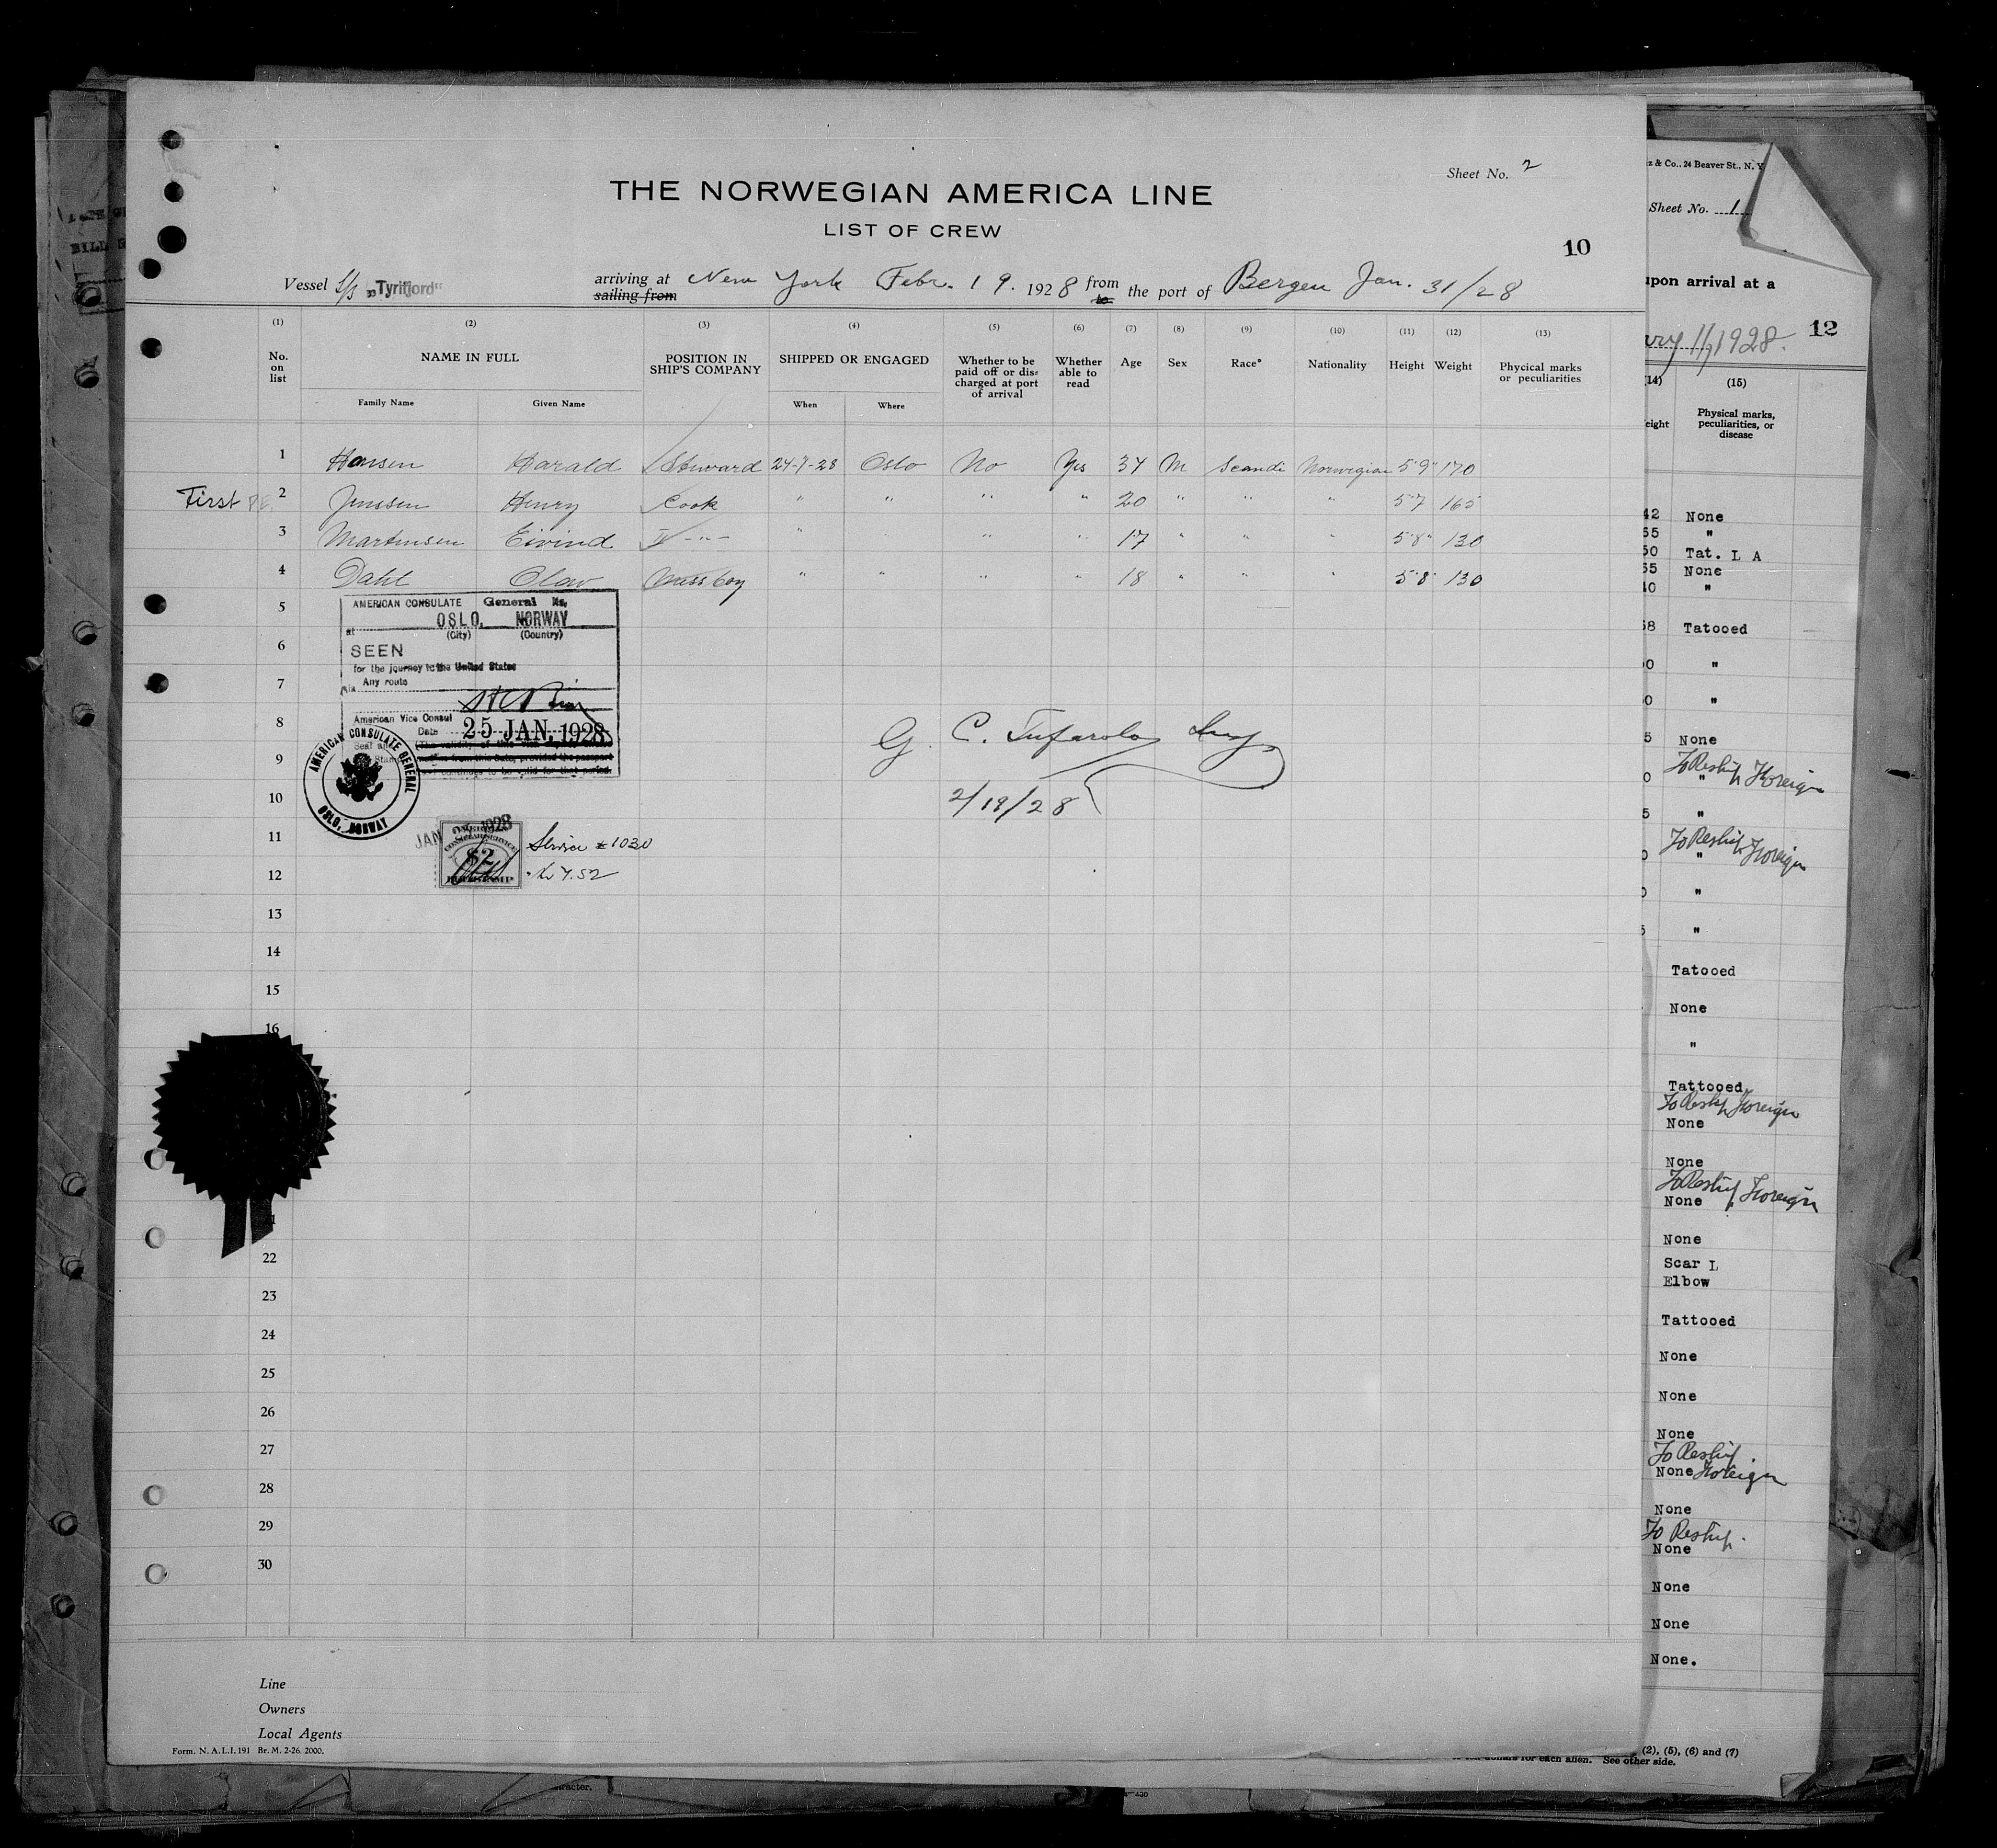 Sheet No. 2
THE NORWEGIAN AMERICA LINE
LIST OF CREW
10
Vessel S/S „Tyrifjord“ arriving at New York Febr. 19. 1928 from the port of Bergen Jan. 31/28
sailing from to
(1) (2) (3) (4) (5) (6) (7) (8) (9) (10) (11) (12) (13)
No. on list NAME IN FULL POSITION IN SHIP'S COMPANY SHIPPED OR ENGAGED Whether to be paid off or dis= charged at port of arrival Whether able to read Age Sex Race* Nationality Height Weight Phycical marks or peculiarities
Family Name Given Name When Where
1 Hansen Harald Steward 24-1-28 Oslo No Yes 34 M Scandi Norwegian 5'9" 170
First 2 Jenssen Henry Cook " " " " 20 " " " 5'7 165
3 Martinsen Eivind II -"- " " " 17 " " " 5'8" 130
4 Dahl Olav Mess boy " " " " 18 " " " 5'8" 130
5
6
7
8
9
10
11
12
13
14
15
16
22
23
24
25
26
27
28
29
30
AMERICAN CONSULATE General
at OSLO, NORWAY
(City) (Country)
SEEN
for the journey to the United States
via Any route
American Vice Consul
Date 25 JAN. 1928
Seal and Stamp
AMERICAN CONSULATE GENERAL
OSLO, NORWAY
G. C. Tufarolo Insp
2/19/28
JAN 1928
$2
Service # 1030
Kr 7.52
Line
Owners
Local Agents
Form. N. A. L. I. 191 Br. M. 2-26. 2000.
& Co., 24 Beaver St., N. Y
Sheet No. 1
upon arrival at a
12
1928.
(14) (15)
Physical marks, peculiarities, or disease
None
"
Tat. L A
None
"
Tatooed
"
"
None
To Reship Foreign
"
"
To Reship Foreign
"
"
"
Tatooed
None
"
Tattooed
To Reship Foreign
None
None
To Reship Foreign
None
None
Scar L
Elbow
Tattooed
None
None
None
To Reship
None Foreign
None
To Reship.
None
None
None
None.
(2), (5), (6) and (7)
for each alien. See other side.